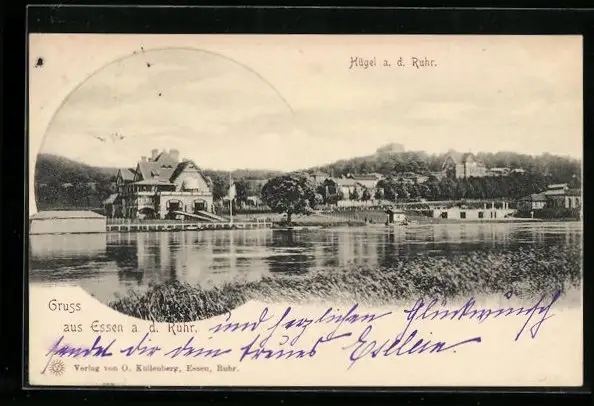 Hügel a. d. Ruhr.
Gruss
aus Essen a. d. Ruhr.
und herzlichen Glückwunsch
sendet Dir dein treues Eselein.
Verlag von O. Küllenberg, Essen, Ruhr.